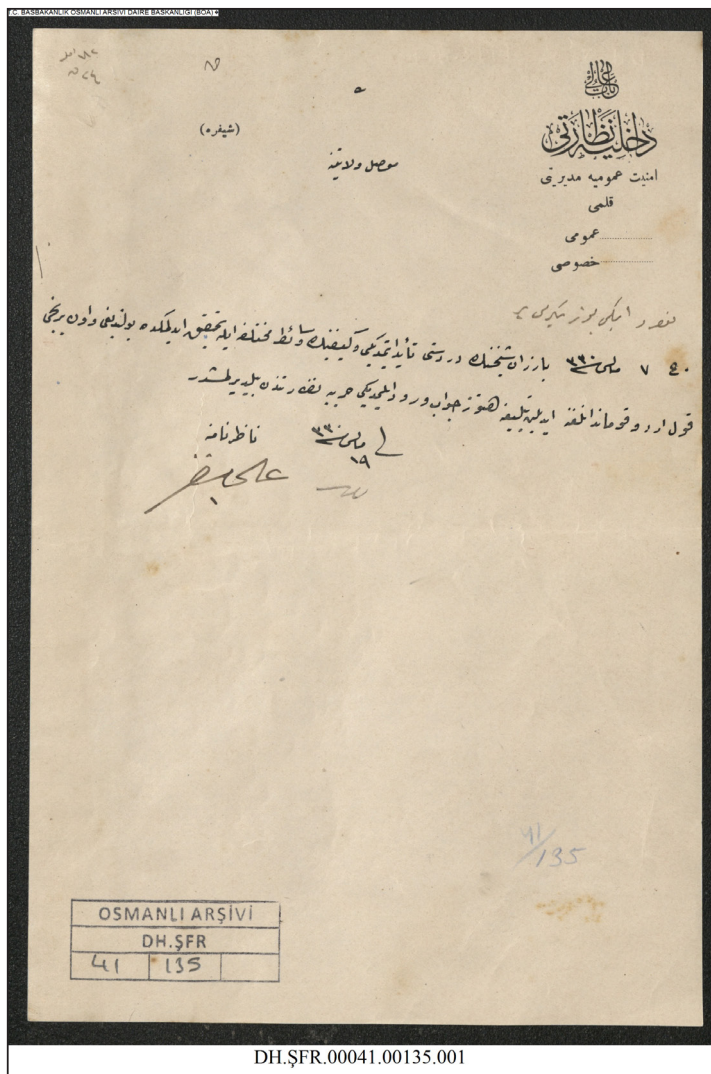 T.C. BAŞBAKANLIK OSMANLI ARŞİVİ DAİRE BAŞKANLIĞI (BOA)
باب عالی
داخلیه نظارتی
امنیت عمومیه مدیریتی
قلمی
عمومی
خصوصی
(شیفره)
موصل ولایتنه
ج ٧ مایس ٣٣٠ بارزان شیخنك دردستی تأید ایتمدیکی وکیفیتك وسائط مختلفه ایله تحقیق ایدلمکده بولندیغی واون برنجی
قول اردو قوماندانلغنه ایدیلن تبلیغه هنوز جواب ورود ایلمدیکی حربیه نظارتندن بیلدیرلمشدر
فی ١٩ مایس ٣٣٠
ناظر نامنه
41/135
OSMANLI ARŞİVİ
DH.ŞFR
41 135
DH.ŞFR.00041.00135.001